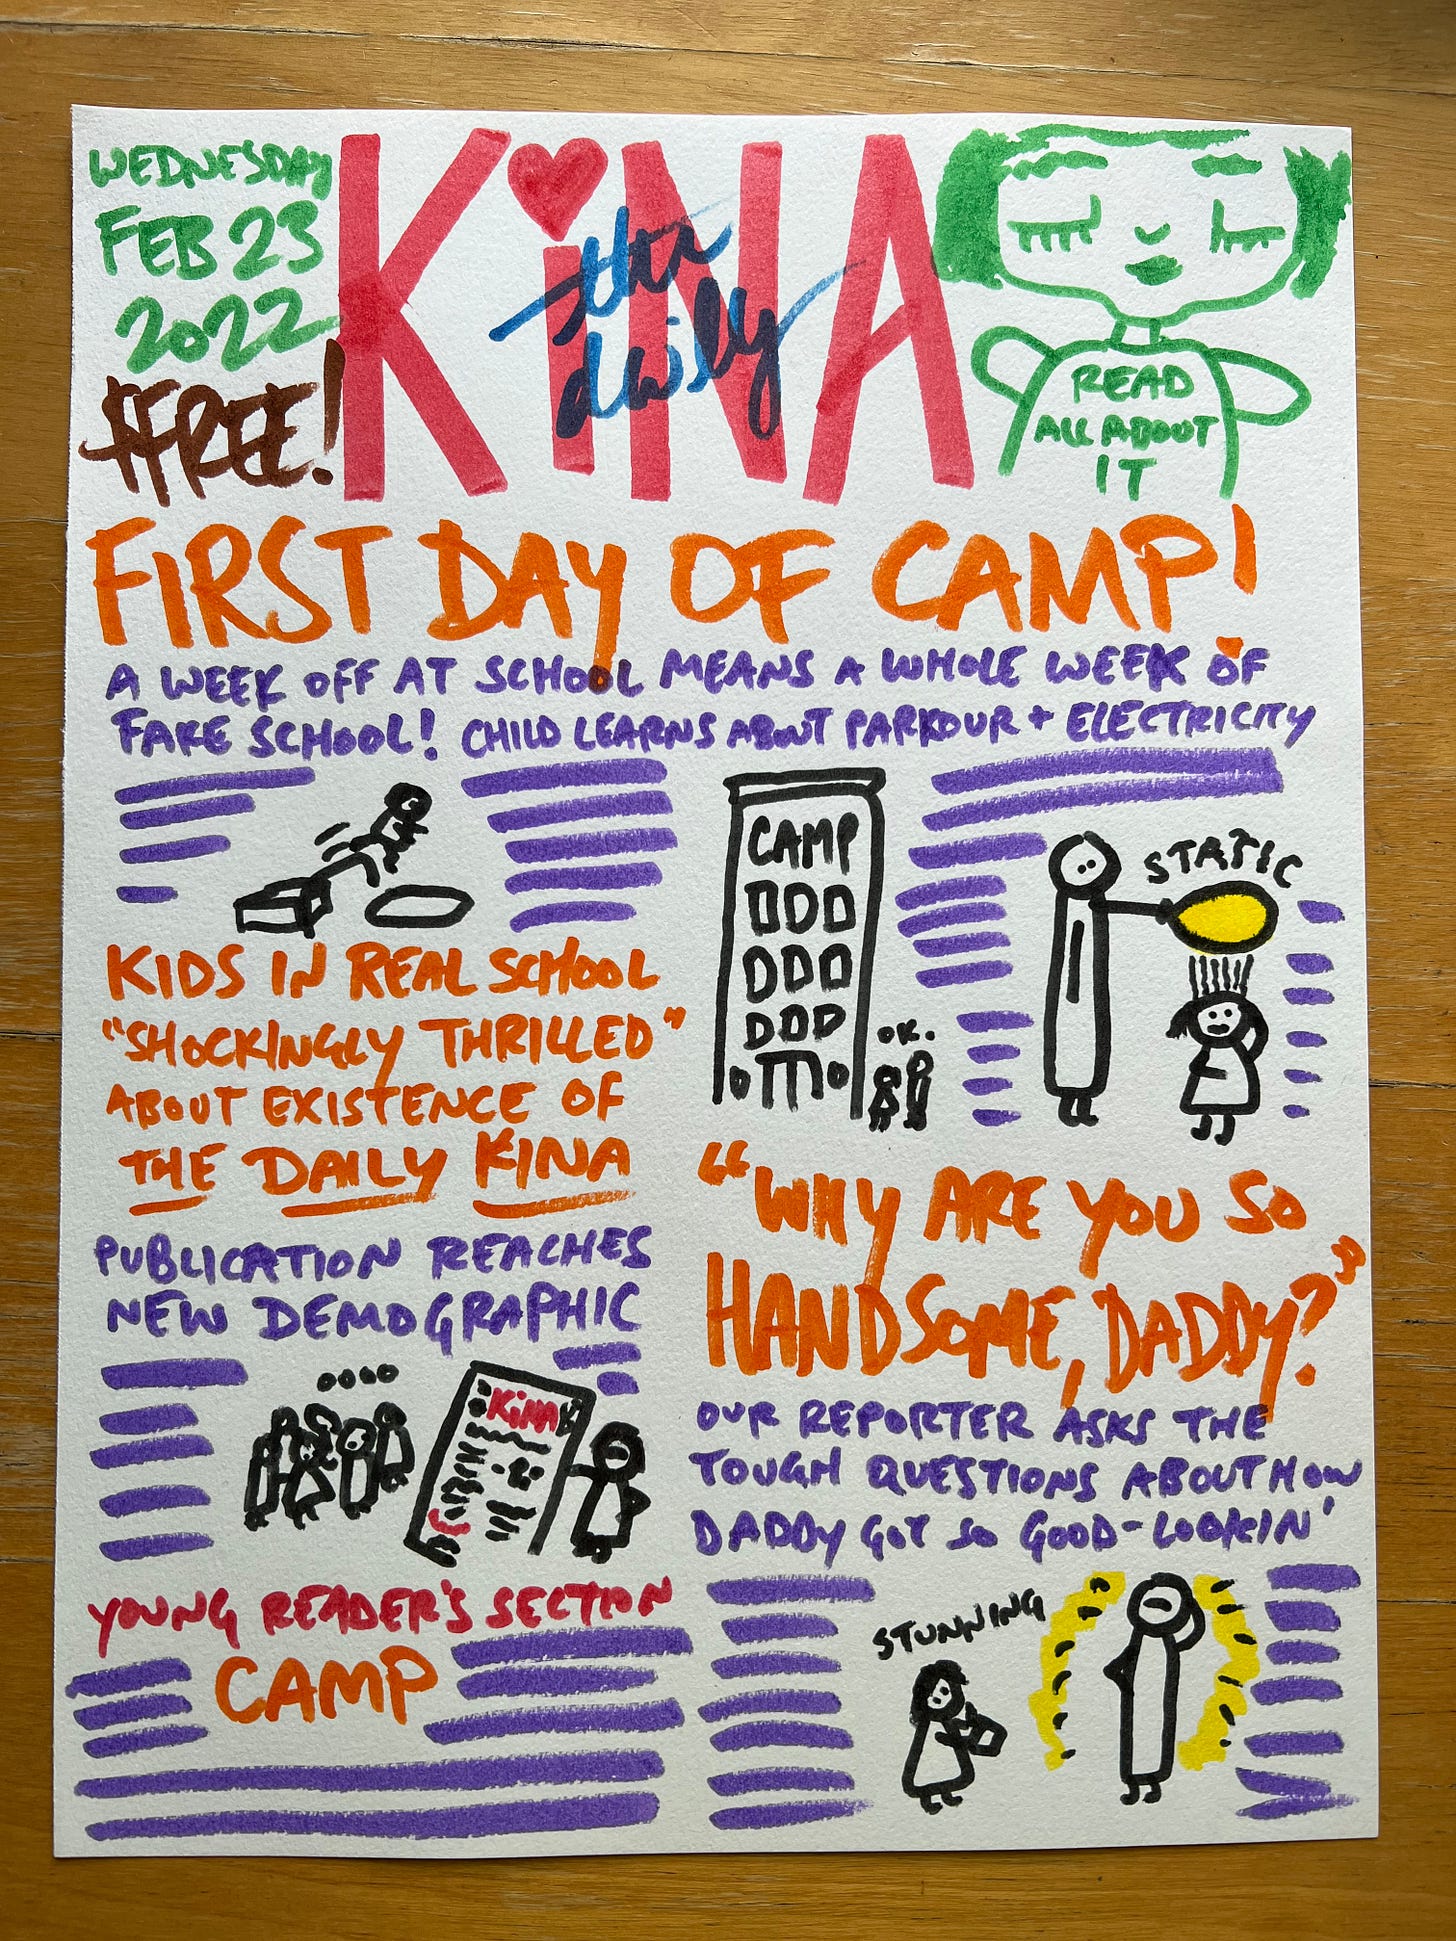 WEDNESDAY
FEB 23
2022
$FREE!
KiNA
the
daily
READ
ALL ABOUT
IT
FIRST DAY OF CAMP!
A WEEK OFF AT SCHOOL MEANS A WHOLE WEEK OF
FAKE SCHOOL! CHILD LEARNS ABOUT PARKOUR + ELECTRICITY
CAMP
OK.
STATIC
KIDS IN REAL SCHOOL
"SHOCKINGLY THRILLED"
ABOUT EXISTENCE OF
THE DAILY KINA
PUBLICATION REACHES
NEW DEMOGRAPHIC
oooo
KiNA
YOUNG READER'S SECTION
CAMP
"WHY ARE YOU SO
HANDSOME, DADDY?"
OUR REPORTER ASKS THE
TOUGH QUESTIONS ABOUT HOW
DADDY GOT SO GOOD-LOOKIN'
STUNNING